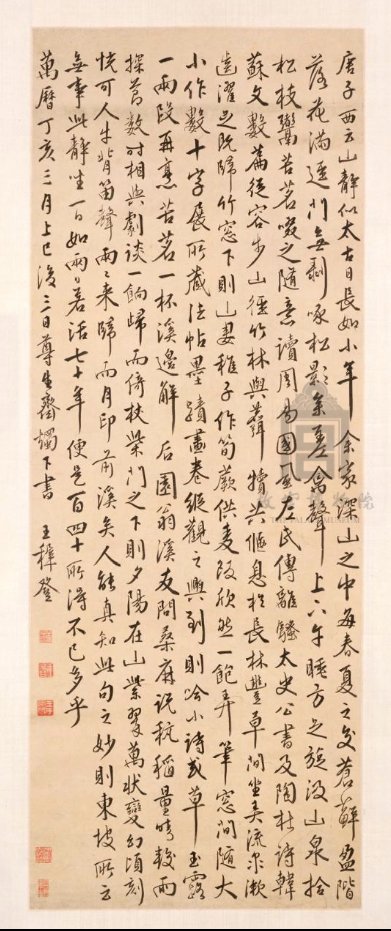 唐子西云山靜似太古日長如小年余家深山之中每春夏之交蒼蘚盈階
落花滿逕門無剝啄松影參差禽聲上下午睡方足旋汲山泉拾
松枝鬻苦茗啜之隨意讀周易國風左氏傳離騷太史公書及陶杜詩韓
蘇文數篇從容步山徑竹林與麛犢共偃息於長林豐草間坐弄流泉漱
齒濯足既歸竹窓下則山妻稚子作筍蕨供麥飯欣然一飽弄筆窓間隨大
小作數十字展所藏法帖墨蹟畫卷縱觀之興到則吟小詩或草玉露
一兩段再烹苦茗一杯溪邊解后園翁溪友問桑麻說秔稻量晴較雨
探節數時相與劇談一餉歸而倚杖柴門之下則夕陽在山紫翠萬狀變幻頃刻
恍可人牛背笛聲兩兩來歸而月印前溪矣人能真知此句之妙則東坡所云
無事此靜坐一日如兩日若活七十年便是百四十所得不已多乎
萬曆丁亥三月上巳後三日尊生齋燭下書 王穉登